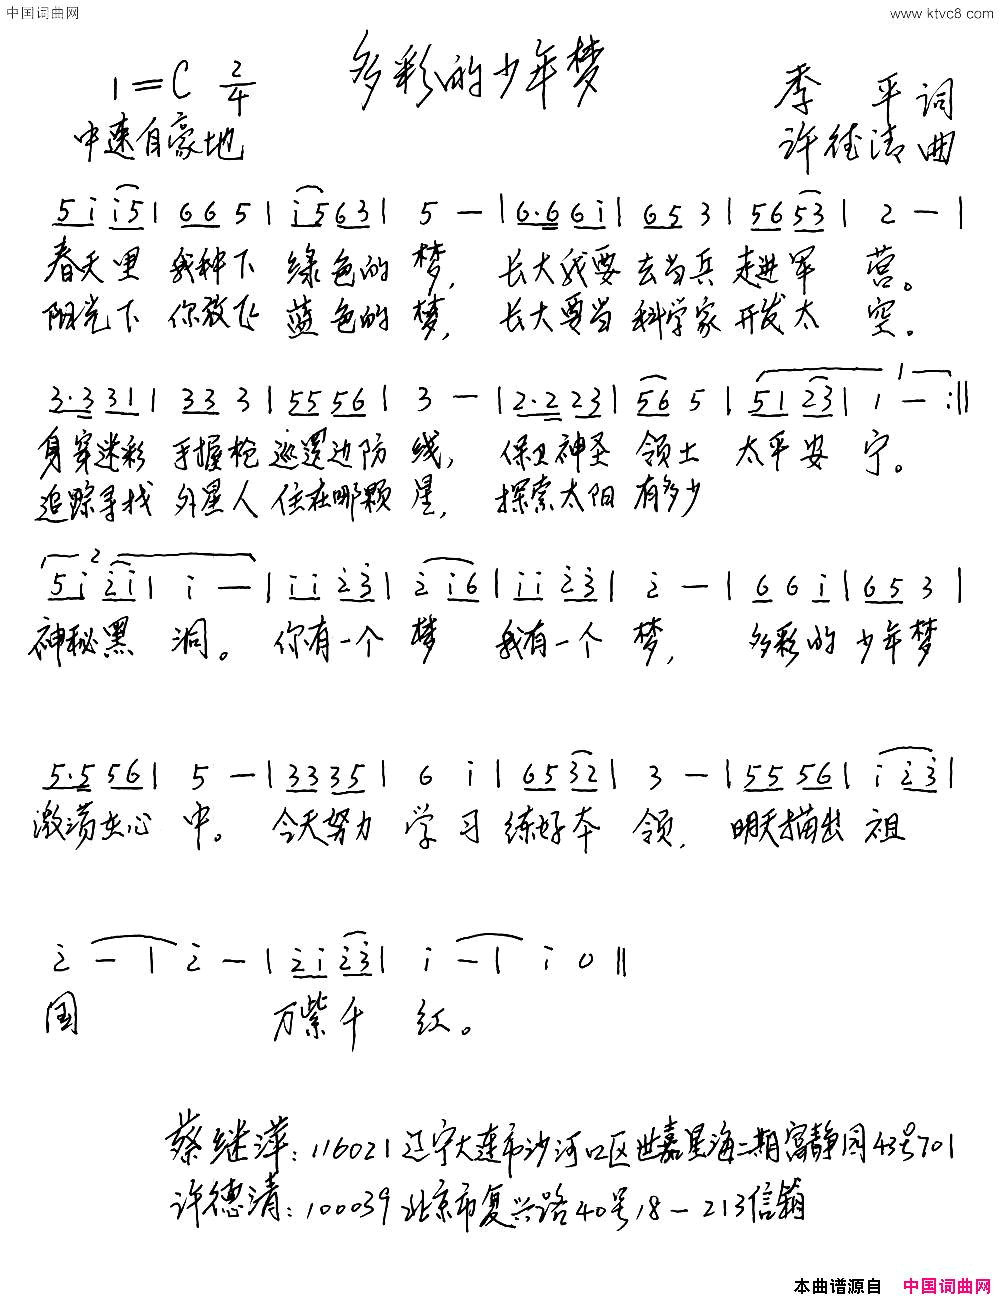 中国词曲网
www.ktvc8.com
多彩的少年梦
1=C 2/4
季 平词
中速自豪地
许德清曲
5 i i5 | 6 6 5 | i 5 6 3 | 5 — | 6·6 6 i | 6 5 3 | 5 6 5 3 | 2 — |
春天里 我种下 绿色的 梦, 长大我要 去当兵 走进军 营。
阳光下 你放飞 蓝色的 梦, 长大要当 科学家 开发太 空。
3·3 3 1 | 3 3 3 | 5 5 5 6 | 3 — | 2·2 2 3 | 5 6 5 | 5 1 2 3 | 1 — :||
身穿迷彩 手握枪 巡逻边防 线, 保卫神圣 领土 太平安 宁。
追踪寻找 外星人 住在哪颗 星, 探索太阳 有多少
5 i 2 i | i — | i i 2 3 | 2 i 6 | i i 2 3 | 2 — | 6 6 i | 6 5 3 |
神秘黑 洞。 你有一个 梦 我有一个 梦, 多彩的 少年梦
5·5 5 6 | 5 — | 3 3 3 5 | 6 i | 6 5 3 2 | 3 — | 5 5 5 6 | i 2 3 |
激荡在心 中。 今天努力 学习 练好本 领, 明天描出 祖
2 — | 2 — | 2 i 2 3 | i — | i 0 ||
国 万紫千 红。
蔡继萍: 116021 辽宁大连市沙河口区世嘉星海二期富静园43号701
许德清: 100039 北京市复兴路40号18—213信箱
本曲谱源自 中国词曲网